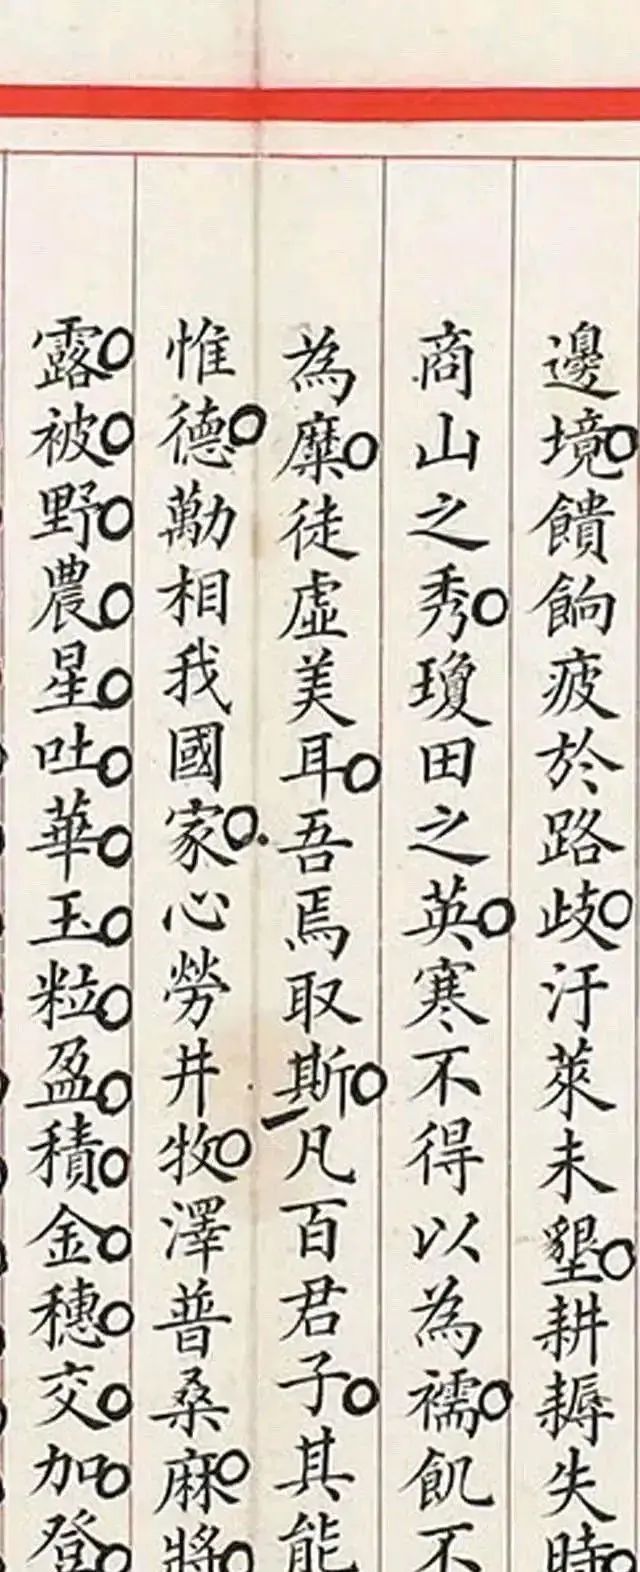 邊境饋餉疲於路歧汙萊未墾耕耨失時
商山之秀瓊田之英寒不得以為襦飢不
為糜徒虛美耳吾焉取斯凡百君子其能
惟德勱相我國家心勞井牧澤普桑麻將
露被野農星吐華玉粒盈積金穗交加登